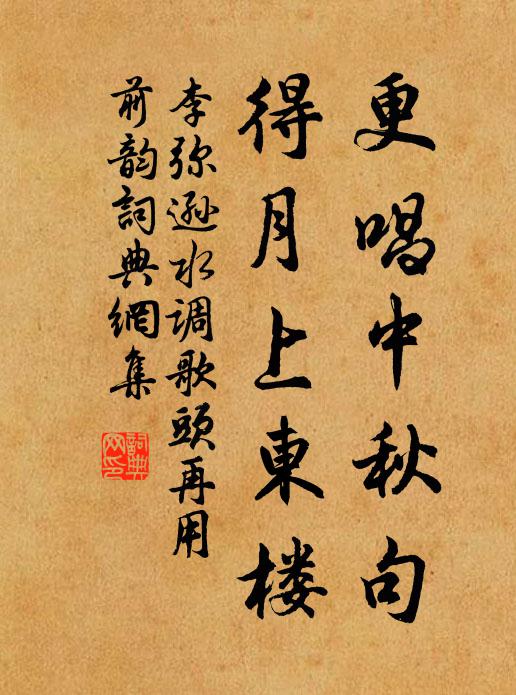 更唱中秋句
得月上東楼
李弥遜水调歌頭再用
前韵詞典網集
詞典网印